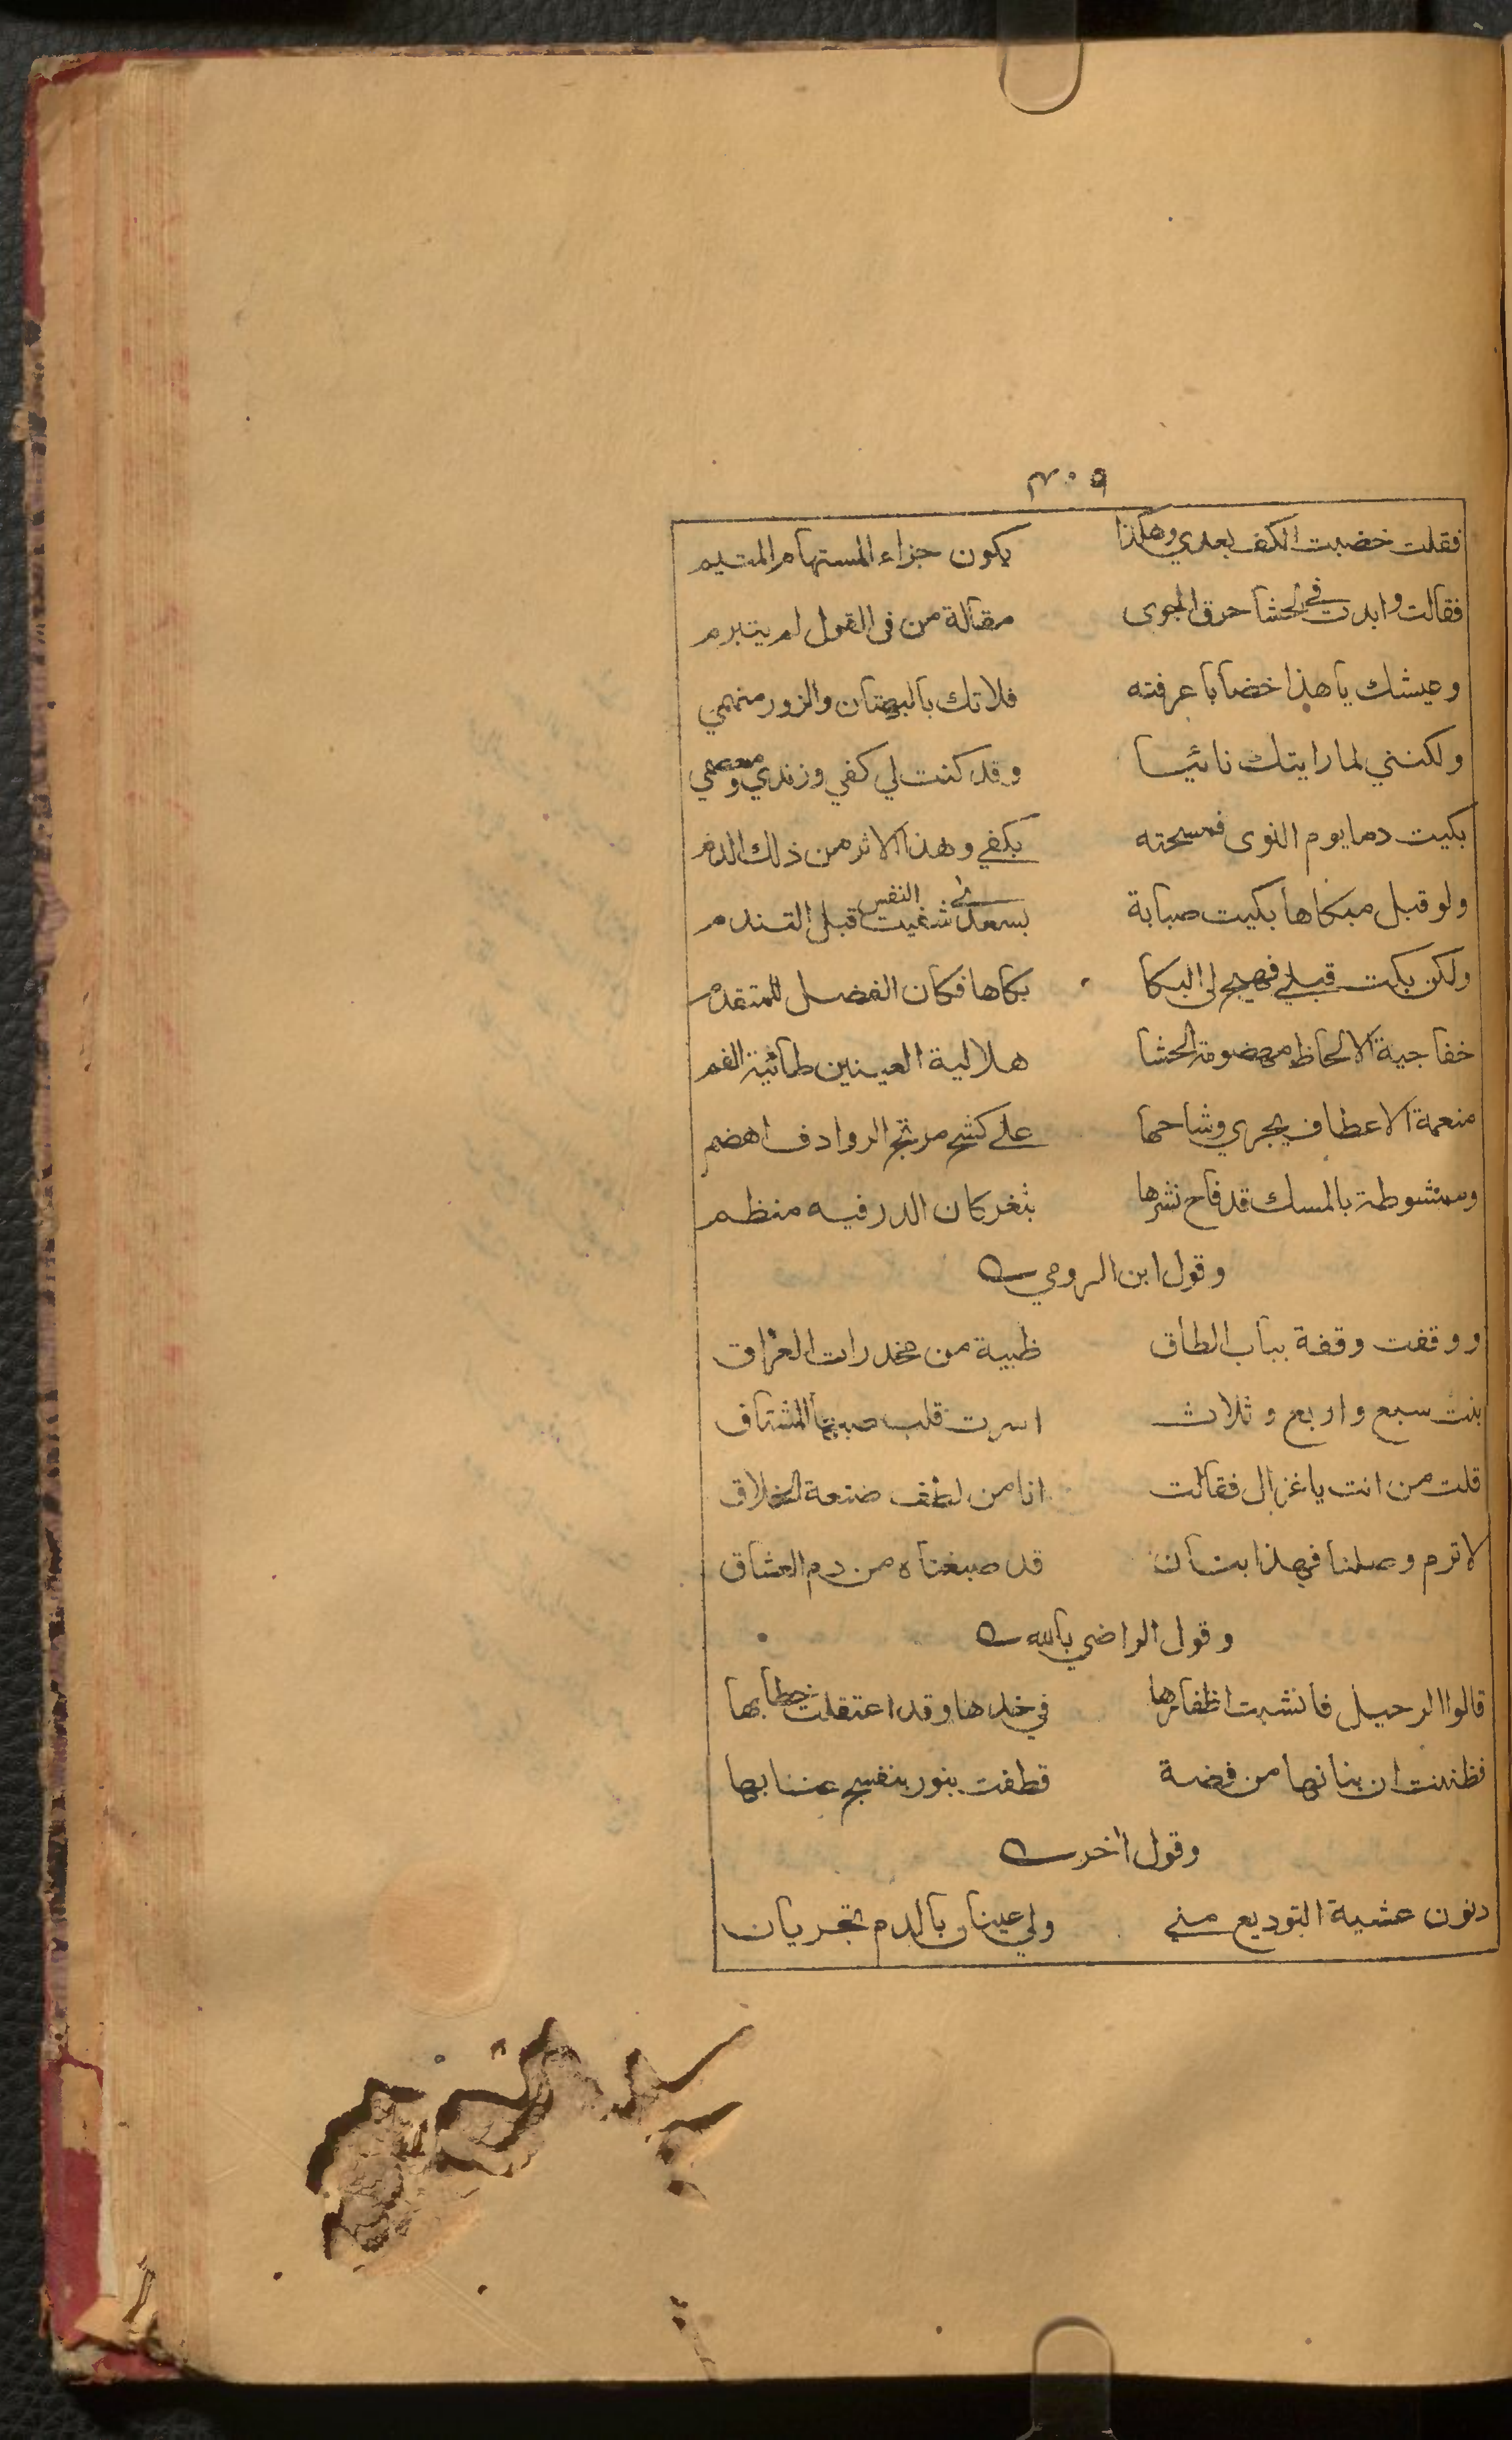 ٤٠٩
فقلت خضبت الكف بعدي وهكذا يكون جزاء المستهام المتيم
فقالت وابدت في الحشا حرق الجوى مقالة من فى القول لم يتبرم
وعيشك يا هذا خضابا عرفته فلا تك بالبهتان والزور متهمي
ولكنني لما رايتك نائيا وقد كنت لي كفي وزندي ومعصمي
بكيت دما يوم النوى فمسحته بكفي وهذا الاثر من ذلك الدم
ولو قبل مبكاها بكيت صبابة بسعدى شفيت النفس قبل التندم
ولكن بكت قبلي فهيج لى البكا بكاها فكان الفضل للمتقدم
خفاجية الالحاظ مهضومة الحشا هلالية العينين طائية الفم
منعمة الاعطاف يجري وشاحها على كشح مرتج الروادف اهضم
وممشوطة بالمسك قد فاح نشرها بثغر كان الدر فيه منظم
وقول ابن الرومي
ووقفت وقفة بباب الطاق ظبية من مخدرات العراق
بنت سبع واربع وثلاث اسرت قلب صبها المشتاق
قلت من انت يا غزال فقالت انا من لطف صنعة الخلاق
لا ترم وصلنا فهذا بنان قد صبغناه من دم العشاق
وقول الراضي بالله
قالوا الرحيل فانشبت اظفارها في خدها وقد اعتقلت خطابها
فظننت ان بنانها من فضة قطفت بنور بنفسج عنابها
وقول اخر
دنون عشية التوديع مني ولي عينان بالدم تجريان